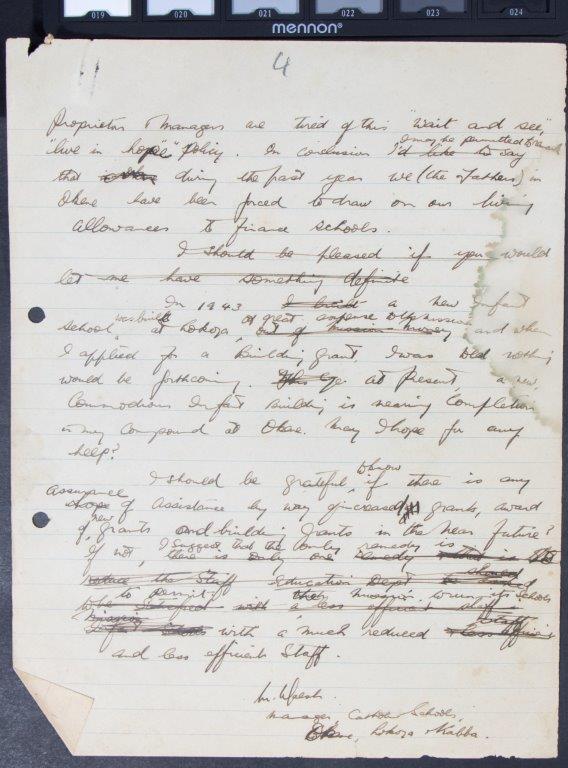 019 020 021 022 023 024
mennon®
4
Proprietors Managers are tired of this "wait and see,"
I may be permitted to
"live in hope" policy. In conclusion I'd like to say
that during the past year we (the Fathers) in
Okene have been forced to draw on our living
allowances to finance schools.
I should be pleased if you would
let me have something definite
In 1943 I built a new Infant
was built at great expense to the mission
school, at Lokoja, out of mission money and when
I applied for a Building Grant I was told nothing
would be forthcoming. At present, a new,
Commodious Infant Building is nearing Completion
in my Compound at Okene. May I hope for any
help?
to know
I should be grateful if there is any
assurance
hope of Assistance by way of increased grants, award
new
of grants and building grants in the near future?
I suggest that the only remedy is
If not, there is only one remedy
reduce the staff Education Dept
to permit the mission to run its schools
with a less efficient staff
with a much reduced less efficient
and less efficient staff.
Manager, Catholic Schools,
Okene, Lokoja & Kabba.